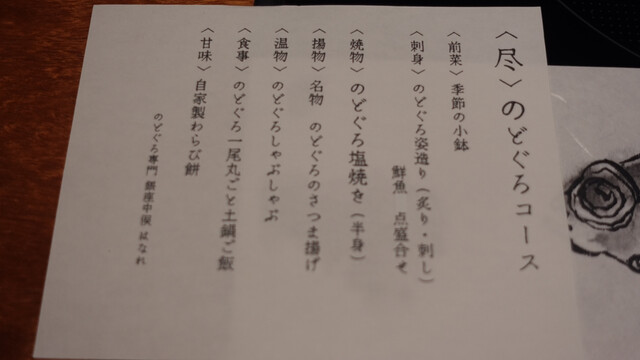 〈尽〉のどぐろコース
〈前菜〉季節の小鉢
〈刺身〉のどぐろ姿造り（炙り・刺し）
鮮魚 点盛合せ
〈焼物〉のどぐろ塩焼き（半身）
〈揚物〉名物 のどぐろのさつま揚げ
〈温物〉のどぐろしゃぶしゃぶ
〈食事〉のどぐろ一尾丸ごと土鍋ご飯
〈甘味〉自家製わらび餅
のどぐろ専門 銀座中俣 はなれ